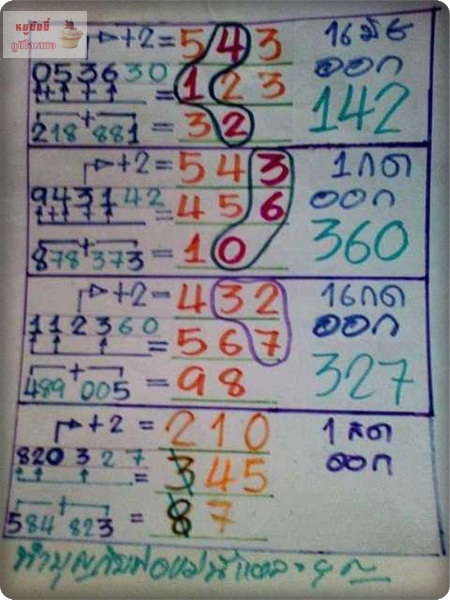 หมูอ้วนๆ
+2 = 543
16 มิย
053630 = 123
ออก
142
218 + 881 = 32
+2 = 543
1 กค
943142 = 456
ออก
360
878 + 373 = 10
+2 = 432
16 กค
112360 = 567
ออก
327
489 + 005 = 98
+2 = 210
1 สค
820327 = 345
ออก
584 + 823 = 87